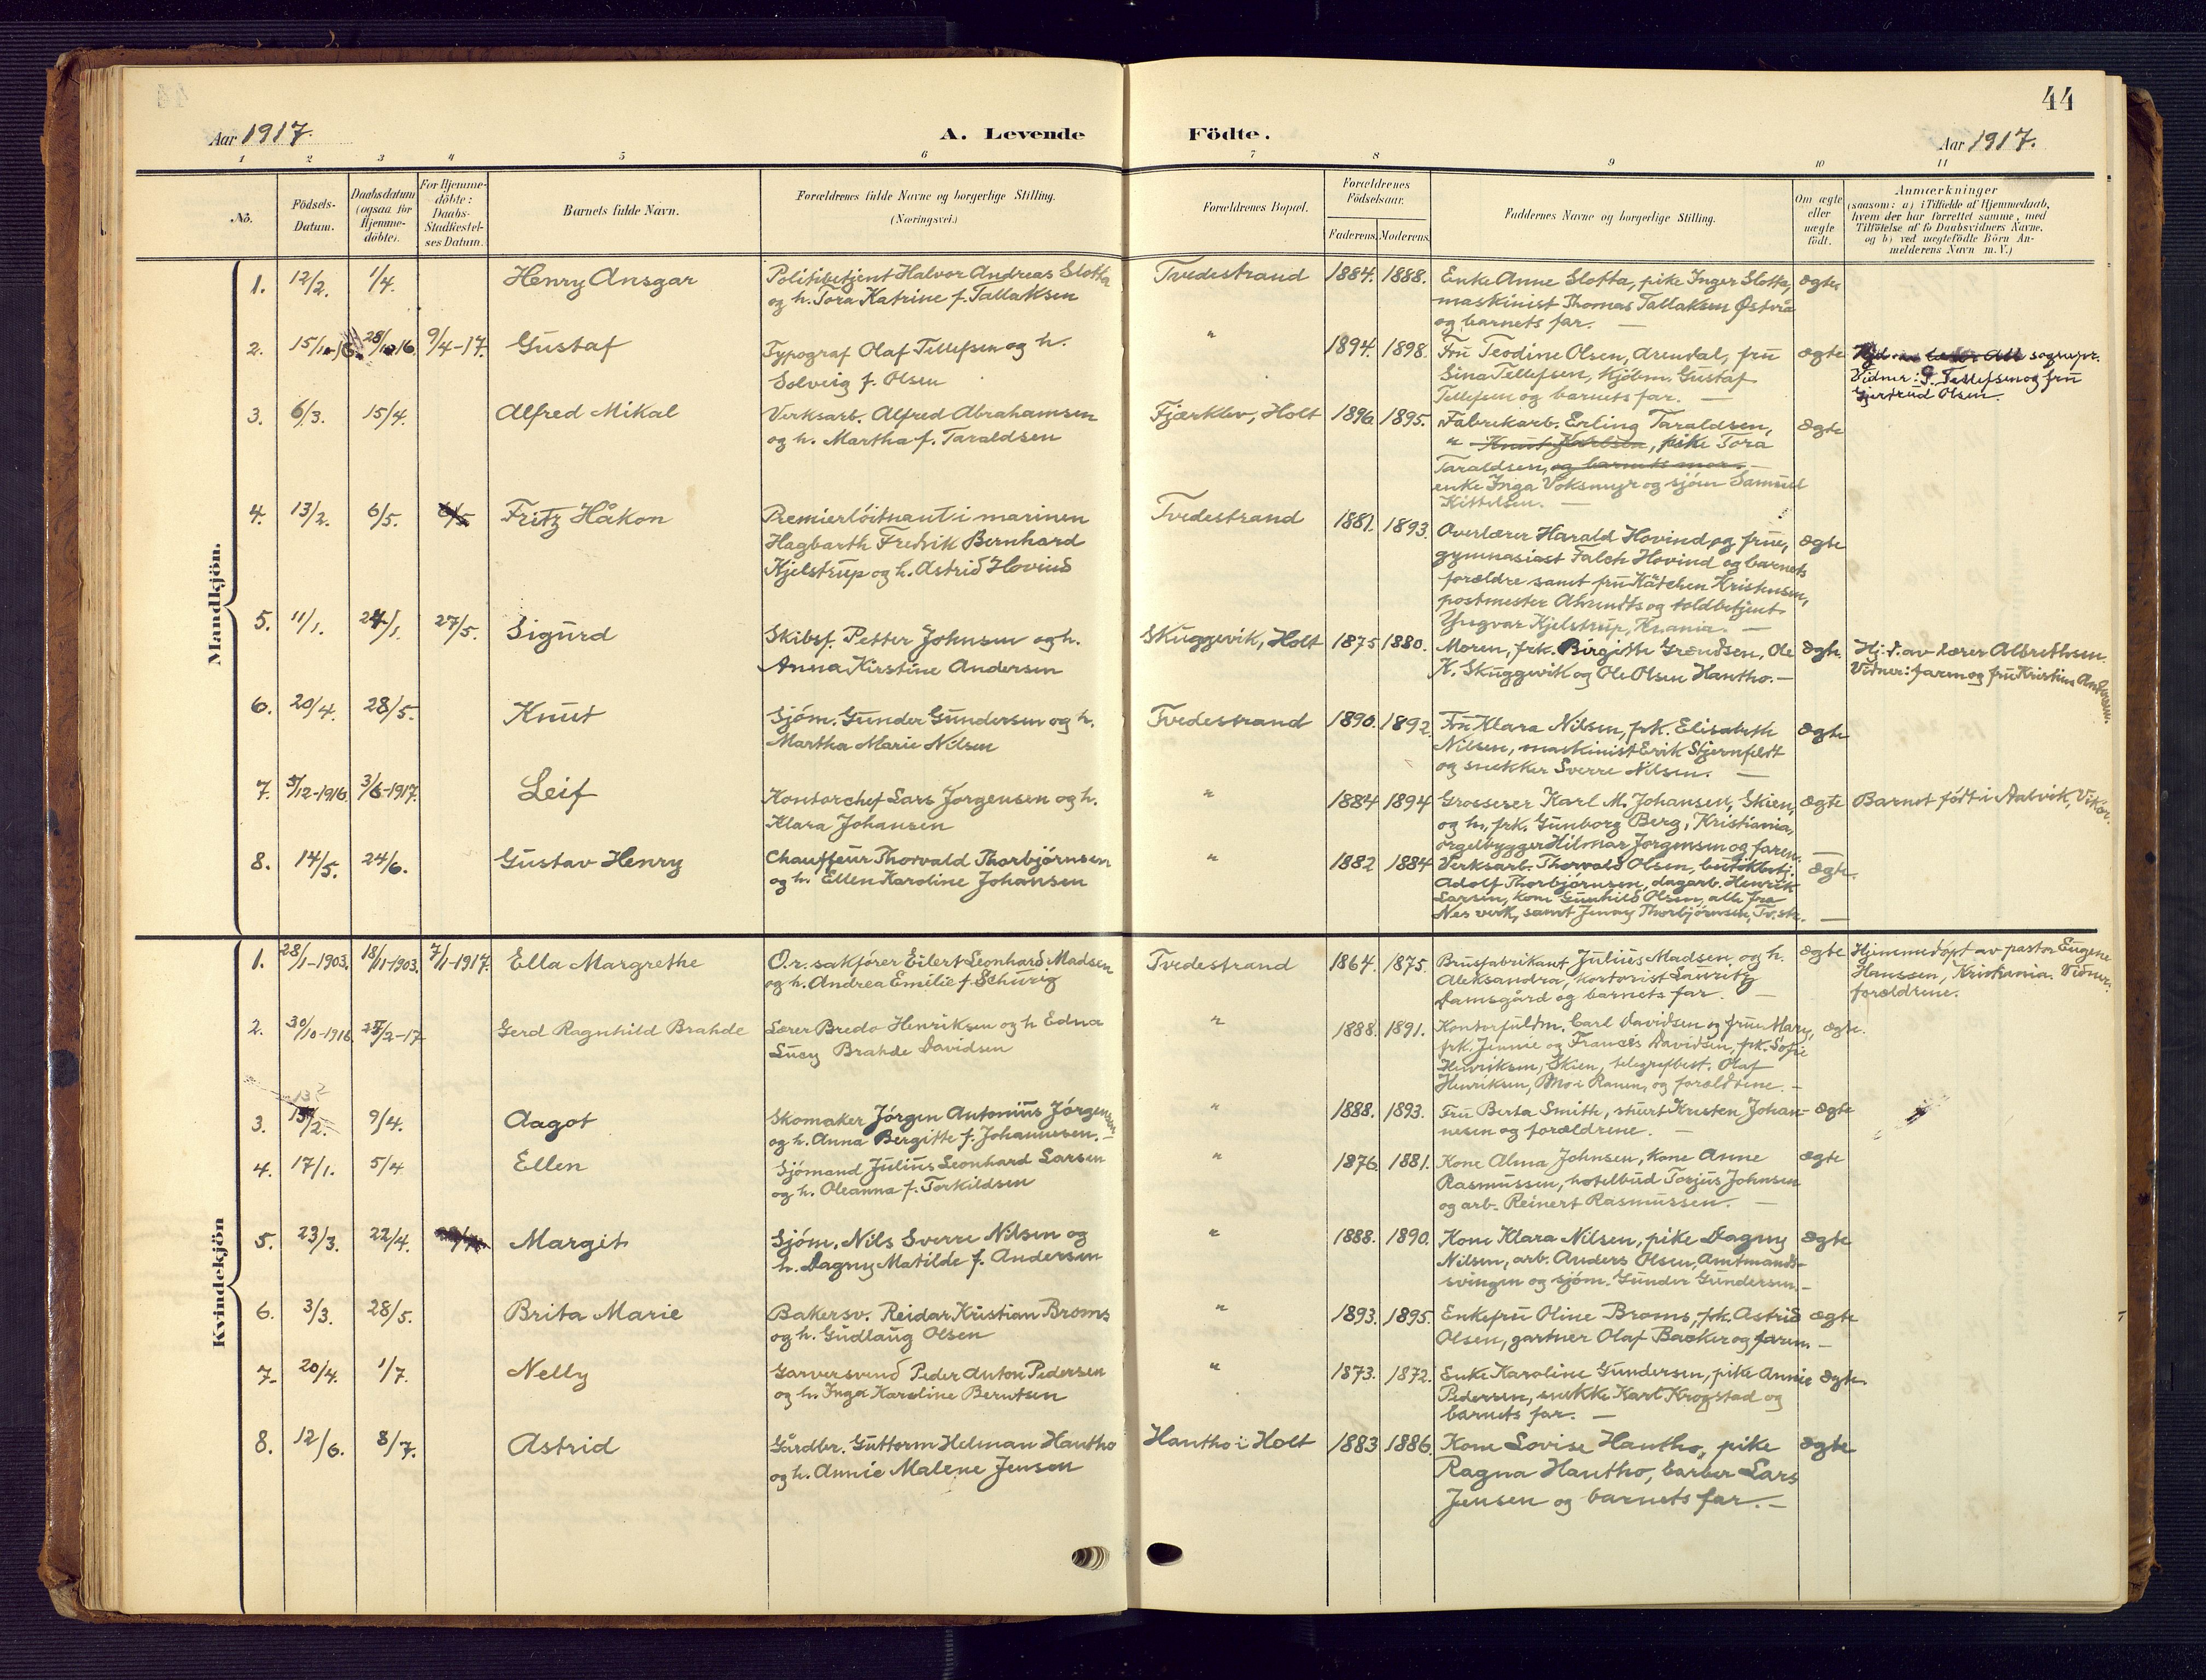 44
Aar 1917.
A. Levende Födte.
Aar 1917.
1 2 3 4 5 6 7 8 9 10 11
No.
Födsels-Datum.
Daabsdatum (ogsaa för Hjemmedöbte).
For Hjemmedöbte: Daabs-Stadfæstelses Datum.
Barnets fulde Navn.
Forældrenes fulde Navne og borgerlige Stilling.
(Næringsvei.)
Forældrenes Bopæl.
Forældrenes Födselsaar.
Faderens. Moderens.
Faddernes Navne og borgerlige Stilling.
Om ægte eller uægte födt.
Anmærkninger
(saasom: a) i Tilfælde af Hjemmedaab,
hvem der har forrettet samme, med
Tilföielse af to Daabsvidners Navne,
og b) ved uægtefödte Börn An-
melderens Navn m.V.)
Mandkjön.
1. 12/2. 1/4. Henry Ansgar
Politibetjent Halvor Andreas Slotta
og h. Tora Katrine f. Tallaksen
Tvedestrand 1884. 1888.
Enke Anne Slotta, pike Inger Slotta,
maskinist Thomas Tallaksen Østerå
og barnets far. —
ægte
2. 15/10-16. 28/10 16 9/4-17. Gustaf
Typograf Olaf Tellefsen og h.
Solveig f. Olsen
" 1894. 1898.
Fru Teodine Olsen, Arendal, fru
Sina Tellefsen, kjöbm. Gustaf
Tellefsen og barnets far. —
ægte
sognepr.
Vidner: P. Tellefsen og fru
Gjertrud Olsen.
3. 6/3. 15/4. Alfred Mikal
Verksarb. Alfred Abrahamsen
og h. Martha f. Taraldsen
Fjærklev, Holt 1896 1895.
Fabrikarb. Erling Taraldsen,
" Knut Karlsen, pike Tora
Taraldsen, og barnets mor. —
enke Inga Voksmyr og sjöm Samuel
Kittelsen. —
ægte
4. 13/2. 6/5. 6/5 Fritz Håkon
Premierlöitnant i marinen
Hagbarth Fredrik Bernhard
Kjelstrup og h. Astrid Hovind
Tvedestrand 1881. 1893.
Overlærer Harald Hovind og frue,
gymnasiast Falch Hovind og barnets
forældre samt fru Kätchen Kristensen,
postmester Ahrendts og toldbetjent
Yngvar Kjelstrup, Krania. —
ægte
5. 11/1. 24/1. 27/5. Sigurd
Skibsf. Petter Johnsen og h.
Anna Kirstine Andersen
Skuggevik, Holt 1875 1880.
Moren, frk. Birgitte Grændsen, Ole
K. Skuggevik og Ole Olsen Hantho. —
ægte.
Hj: d. av lærer Albrethsen.
Vidner: faren og fru Kristine Andersen.
6. 20/4. 28/5. Knut
Sjöm. Gunder Gundersen og h.
Martha Marie Nilsen
Tvedestrand 1890. 1892.
Fru Klara Nilsen, frk. Elisabeth
Nilsen, maskinist Erik Stjernfeldt
og snekker Sverre Nilsen. —
ægte
7. 5/12-1916. 3/6-1917. Leif
Kontorchef Lars Jorgensen og h.
Klara Johansen
" 1884 1894
Grosserer Karl M. Johansen, Skien,
og h., frk. Gunborg Berg, Kristiania,
orgelbygger Hilmar Jorgensen og faren.
ægte
Barnet födt i Aalvik, Vikör.
8. 14/5. 24/6. Gustav Henry
Chauffeur Thorvald Thorbjörnsen
og h. Ellen Karoline Johansen
" 1882 1884
Verksarb. Thorvald Olsen, butikbetj.
Adolf Thorbjörnsen, dagarb. Henrik
Larsen, kone Gunhild Olsen, alle fra
Nes verk, samt Jenny Thorbjörnsen, Tv.str. —
ægte.
Kvindekjön
1. 28/1-1903. 18/11-1903. 7/1-1917. Ella Margrethe
O.r. sakförer Eilert Leonhard Madsen
og h. Andrea Emilie f. Schurig
Tvedestrand 1864. 1875.
Brusfabrikant Julius Madsen og h.
Aleksandra, kontorist Lauritz
Damsgård og barnets far. —
ægte
Hjemmedöpt av pastor Eugene
Hanssen, Kristiania. Vidner:
forældrene.
2. 30/10-1916. 25/2-17 Gerd Ragnhild Brahde
Lærer Bredo Henriksen og h Edna
Lucy Brahde Davidsen
" 1888. 1891.
Kontorfuldm. Carl Davidsen og frue Mary,
frk. Jennie og Francis Davidsen, frk. Sofie
Henriksen, Skien, telegrafbest. Olaf
Henriksen, Mo i Ranen, og forældrene. —
ægte.
3. 13/2. 9/4. Aagot
Skomaker Jörgen Antonius Jörgensen
og h. Anna Bergitte f. Johannesen.
" 1888. 1893.
Fru Berta Smith, stuert Kristen Johan-
nesen og forældrene. —
ægte
4. 17/1. 5/4 Ellen
Sjömand Julius Leonhard Larsen
og h. Oleanna f. Terkildsen
" 1876. 1881.
Kone Alma Johnsen, kone Anne
Rasmussen, hotelbud Torjus Johnsen
og arb. Reinert Rasmussen. —
ægte
5. 23/3. 22/4. Margit
Sjöm. Nils Sverre Nilsen og
h. Dagny Matilde f. Andersen
" 1888. 1890.
Kone Klara Nilsen, pike Dagny
Nilsen, arb. Anders Olsen, Amtmands-
svingen og sjöm. Gunder Gundersen. —
ægte
6. 3/3. 28/5. Brita Marie
Bakersv. Reidar Kristian Broms
og h. Gudlaug Olsen
" 1893. 1895.
Enkefru Oline Broms, frk. Astrid
Olsen, gartner Olaf Backer og faren. —
ægte
7. 20/4. 1/7. Nelly
Garversvend Peder Anton Pedersen
og h. Inga Karoline Berntsen
" 1873. 1872.
Enke Karoline Gundersen, pike Annie
Pedersen, snekke Karl Krogstad og
barnets far. —
ægte.
8. 12/6. 8/7. Astrid
Gårdbr. Guttorm Helman Hantho
og h. Annie Malene Jensen
Hantho i Holt 1883 1886.
Kone Lovise Hantho, pike
Ragna Hantho, barber Lars
Jensen og barnets far. —
ægte